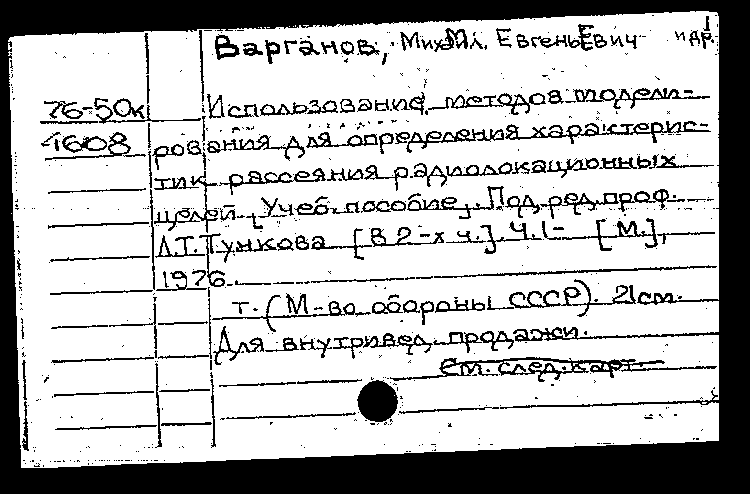 Варганов, Михаил Евгеньевич и др.
76-50к
4608
Использование методов модели-
рования для определения характерис-
тик рассеяния радиолокационных
целей [Учеб. пособие]. Под ред. проф.
Л.Т. Тучкова [В 2-х ч.]. Ч.1- [М.],
1976.
т. (М-во обороны СССР). 21см.
Для внутривед. продажи.
См. след. карт.